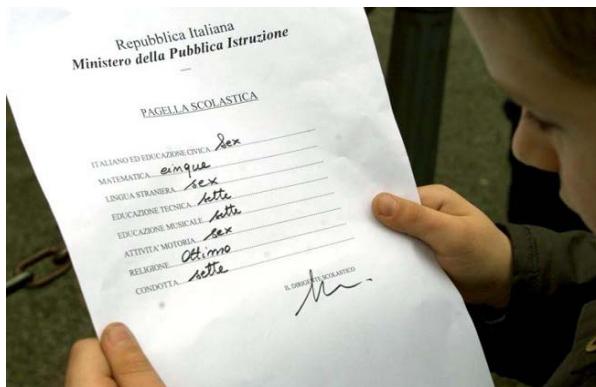 Repubblica Italiana
Ministero della Pubblica Istruzione
PAGELLA SCOLASTICA
ITALIANO ED EDUCAZIONE CIVICA sex
MATEMATICA cinque
LINGUA STRANIERA sex
EDUCAZIONE TECNICA sette
EDUCAZIONE MUSICALE sette
ATTIVITA' MOTORIA sex
RELIGIONE Ottimo
CONDOTTA sette
IL DIRIGENTE SCOLASTICO